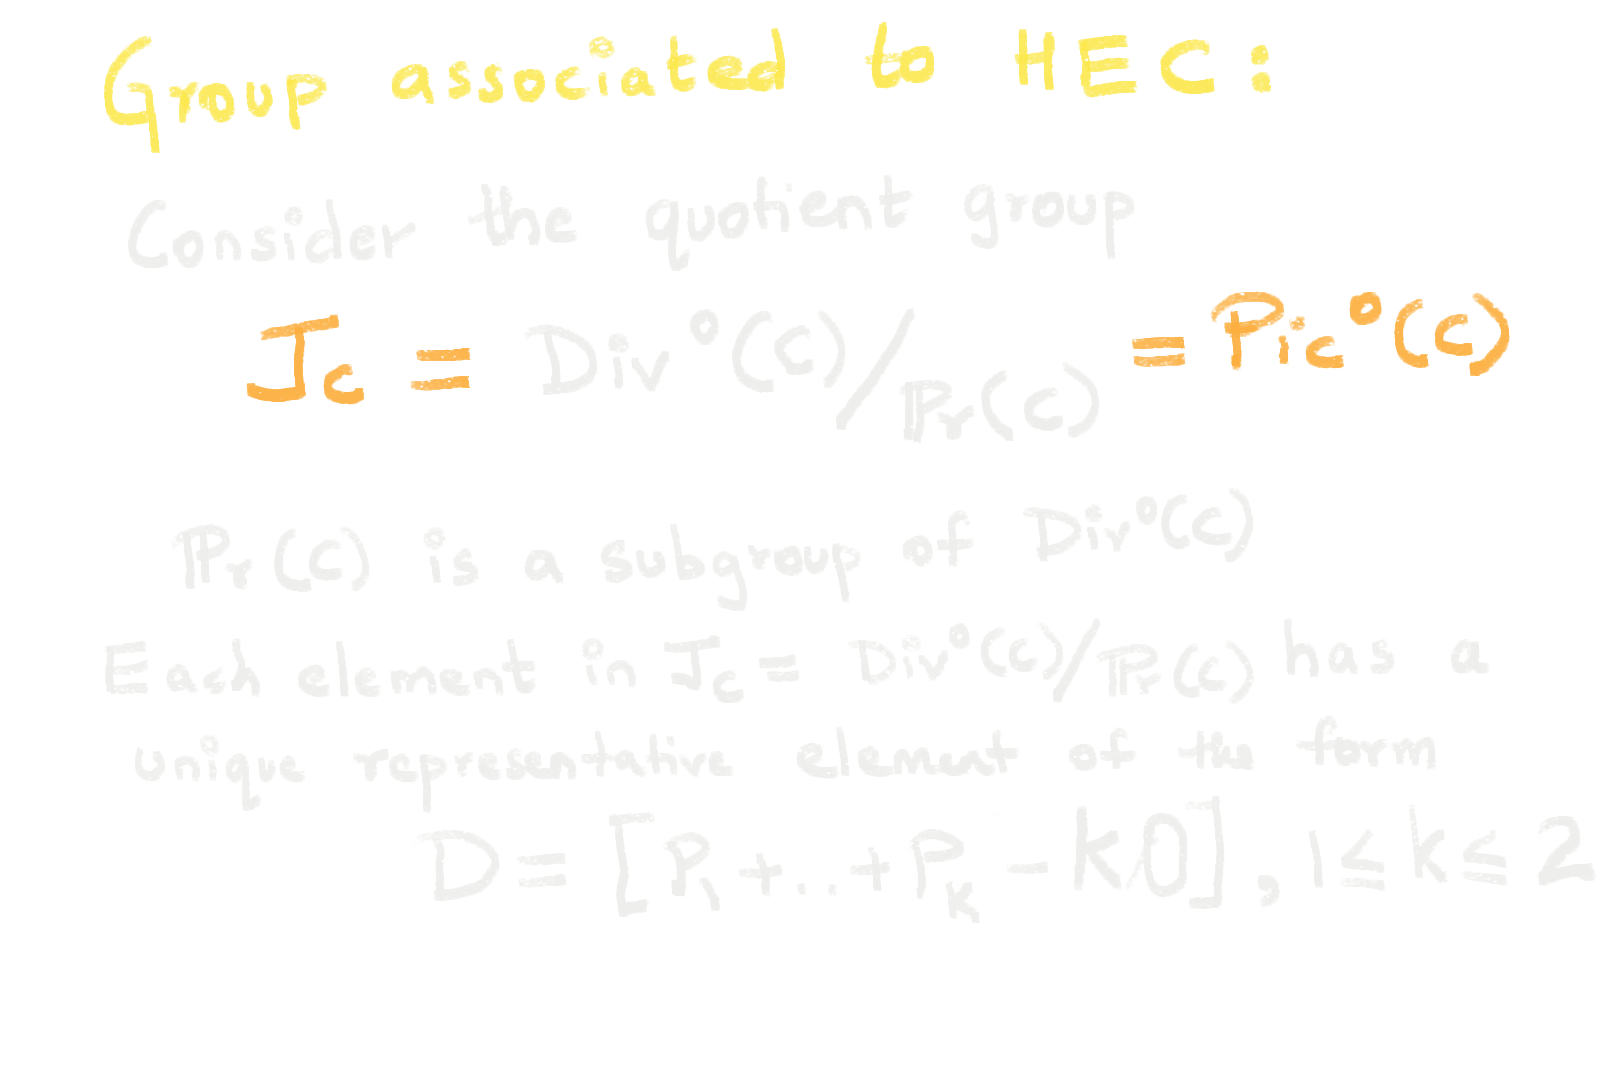 Group associated to HEC:
Consider the quotient group
J_C = Div⁰(C)/Pr(C) = Pic⁰(C)
ℙr(C) is a subgroup of Div⁰(C)
Each element in J_C = Div⁰(C)/ℙr(C) has a
unique representative element of the form
D = [P₁+..+P_k - kO], 1 ≤ k ≤ 2